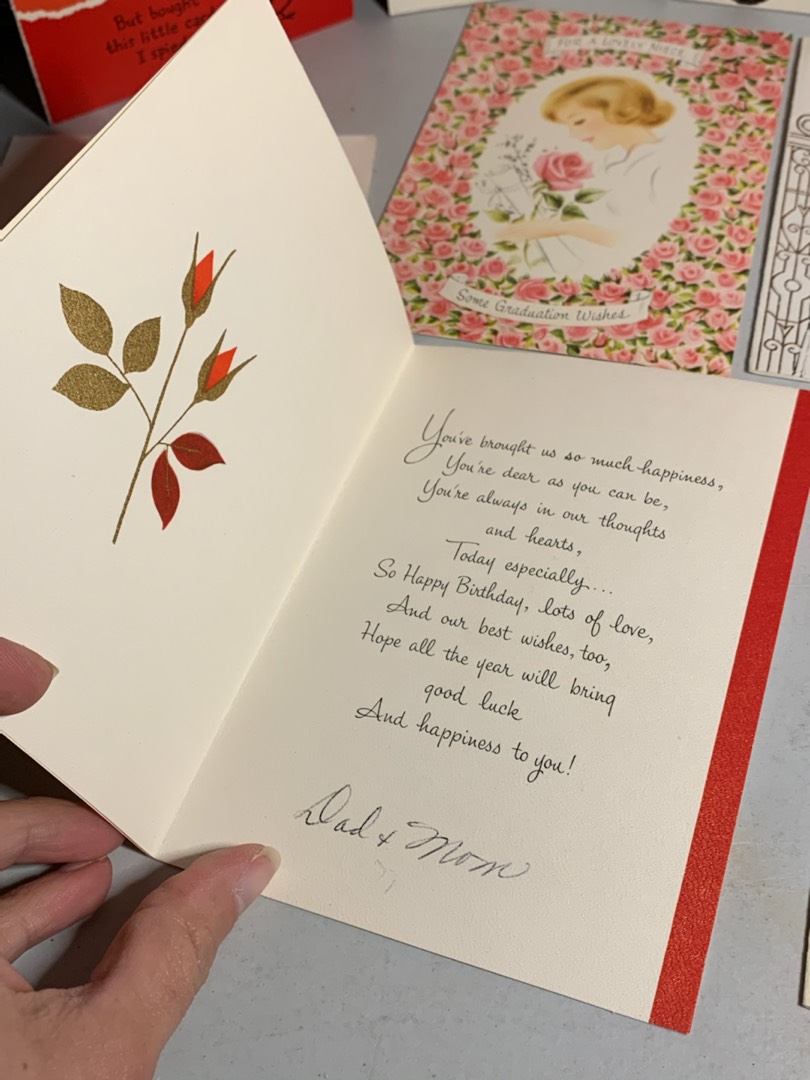 But bought
this little ca
I spie
FOR A LOVELY NIECE
Some Graduation Wishes
You've brought us so much happiness,
You're dear as you can be,
You're always in our thoughts
and hearts,
Today especially...
So Happy Birthday, lots of love,
And our best wishes, too,
Hope all the year will bring
good luck
And happiness to you!
Dad & Mom